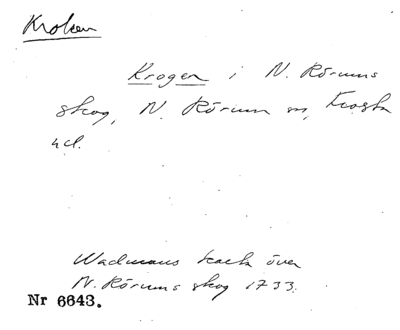 Kroken
Krogen i N. Rörums
skog, N. Rörum sn, Frosta
hd.
Wadmans karta över
N. Rörums skog 1733.
Nr 6643.